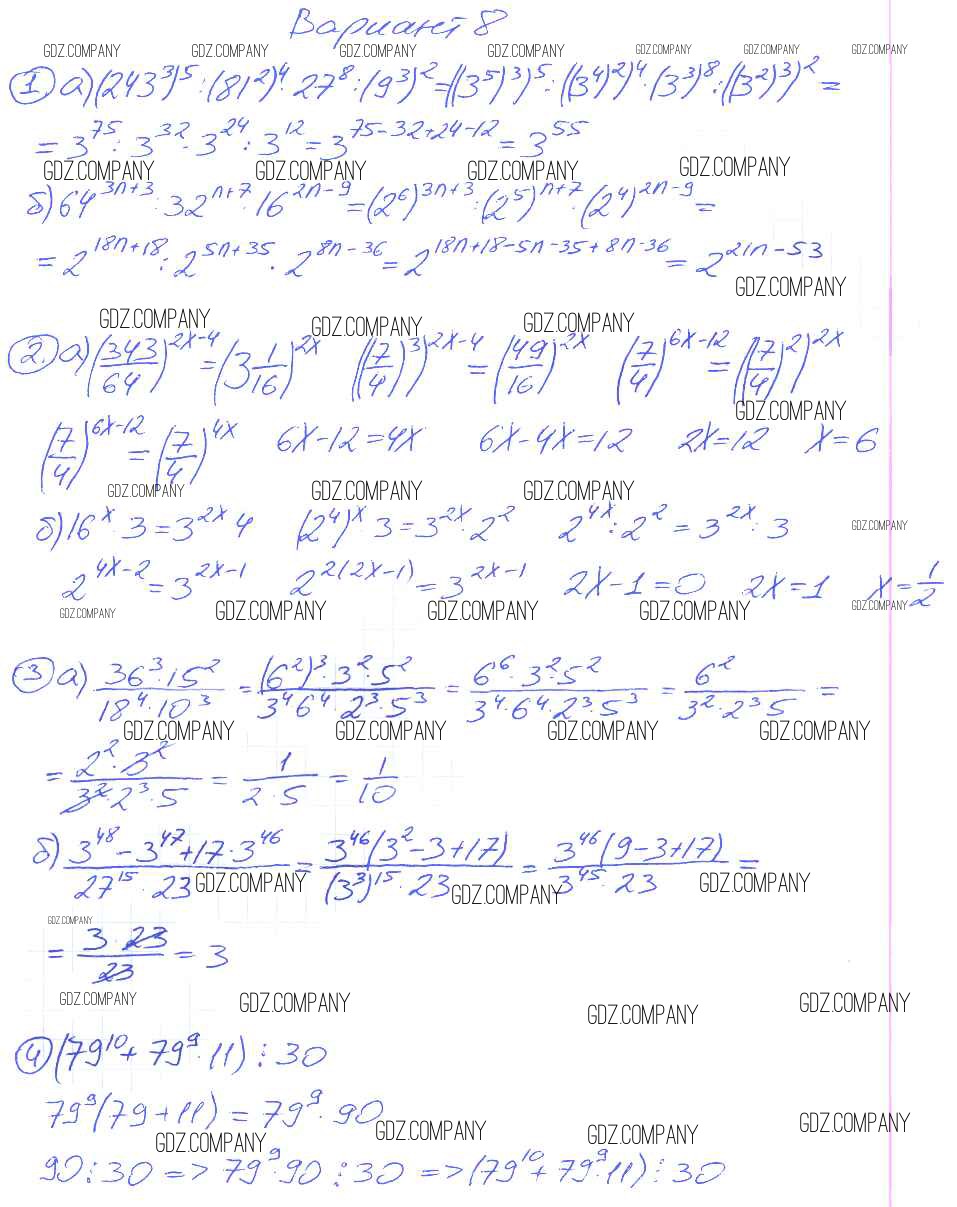 Вариант 8
GDZ.COMPANY GDZ.COMPANY GDZ.COMPANY GDZ.COMPANY GDZ.COMPANY GDZ.COMPANY GDZ.COMPANY
① а) (243³)⁵ : (81²)⁴ · 27⁸ : (9³)² = ((3⁵)³)⁵ : ((3⁴)²)⁴ · (3³)⁸ : ((3²)³)² =
= 3⁷⁵ : 3³² · 3²⁴ : 3¹² = 3⁷⁵⁻³²⁺²⁴⁻¹² = 3⁵⁵
GDZ.COMPANY GDZ.COMPANY GDZ.COMPANY GDZ.COMPANY
б) 64^(3n+3) : 32^(n+7) · 16^(2n-9) = (2⁶)^(3n+3) : (2⁵)^(n+7) · (2⁴)^(2n-9) =
= 2^(18n+18) : 2^(5n+35) · 2^(8n-36) = 2^(18n+18-5n-35+8n-36) = 2^(21n-53)
GDZ.COMPANY
GDZ.COMPANY GDZ.COMPANY GDZ.COMPANY
② а) (343/64)^(2x-4) = (3 1/16)^(2x) ((7/4)³)^(2x-4) = (49/16)^(2x) (7/4)^(6x-12) = ((7/4)²)^(2x)
GDZ.COMPANY
(7/4)^(6x-12) = (7/4)^(4x) 6x-12=4x 6x-4x=12 2x=12 x=6
GDZ.COMPANY GDZ.COMPANY GDZ.COMPANY
б) 16^x · 3 = 3^(2x) · 4 (2⁴)^x · 3 = 3^(2x) · 2² 2^(4x) : 2² = 3^(2x) : 3 GDZ.COMPANY
2^(4x-2) = 3^(2x-1) 2^(2(2x-1)) = 3^(2x-1) 2x-1=0 2x=1 x=1/2
GDZ.COMPANY GDZ.COMPANY GDZ.COMPANY GDZ.COMPANY GDZ.COMPANY
③ а) 36³·15²/18⁴·10³ = (6²)³·3²·5²/3⁴6⁴·2³·5³ = 6⁶·3²·5²/3⁴·6⁴·2³·5³ = 6²/3²·2³·5 =
GDZ.COMPANY GDZ.COMPANY GDZ.COMPANY GDZ.COMPANY
= 2²·3²/3²·2³·5 = 1/2·5 = 1/10
б) 3⁴⁸-3⁴⁷+17·3⁴⁶/27¹⁵·23 = 3⁴⁶(3²-3+17)/(3³)¹⁵·23 = 3⁴⁶(9-3+17)/3⁴⁵·23 =
GDZ.COMPANY GDZ.COMPANY GDZ.COMPANY
GDZ.COMPANY
= 3·23/23 = 3
GDZ.COMPANY GDZ.COMPANY GDZ.COMPANY GDZ.COMPANY
④ (79¹⁰ + 79⁹·11) ⋮ 30
79⁹(79+11) = 79⁹·90
GDZ.COMPANY GDZ.COMPANY GDZ.COMPANY GDZ.COMPANY
90⋮30 => 79⁹·90 ⋮ 30 => (79¹⁰+79⁹·11) ⋮ 30